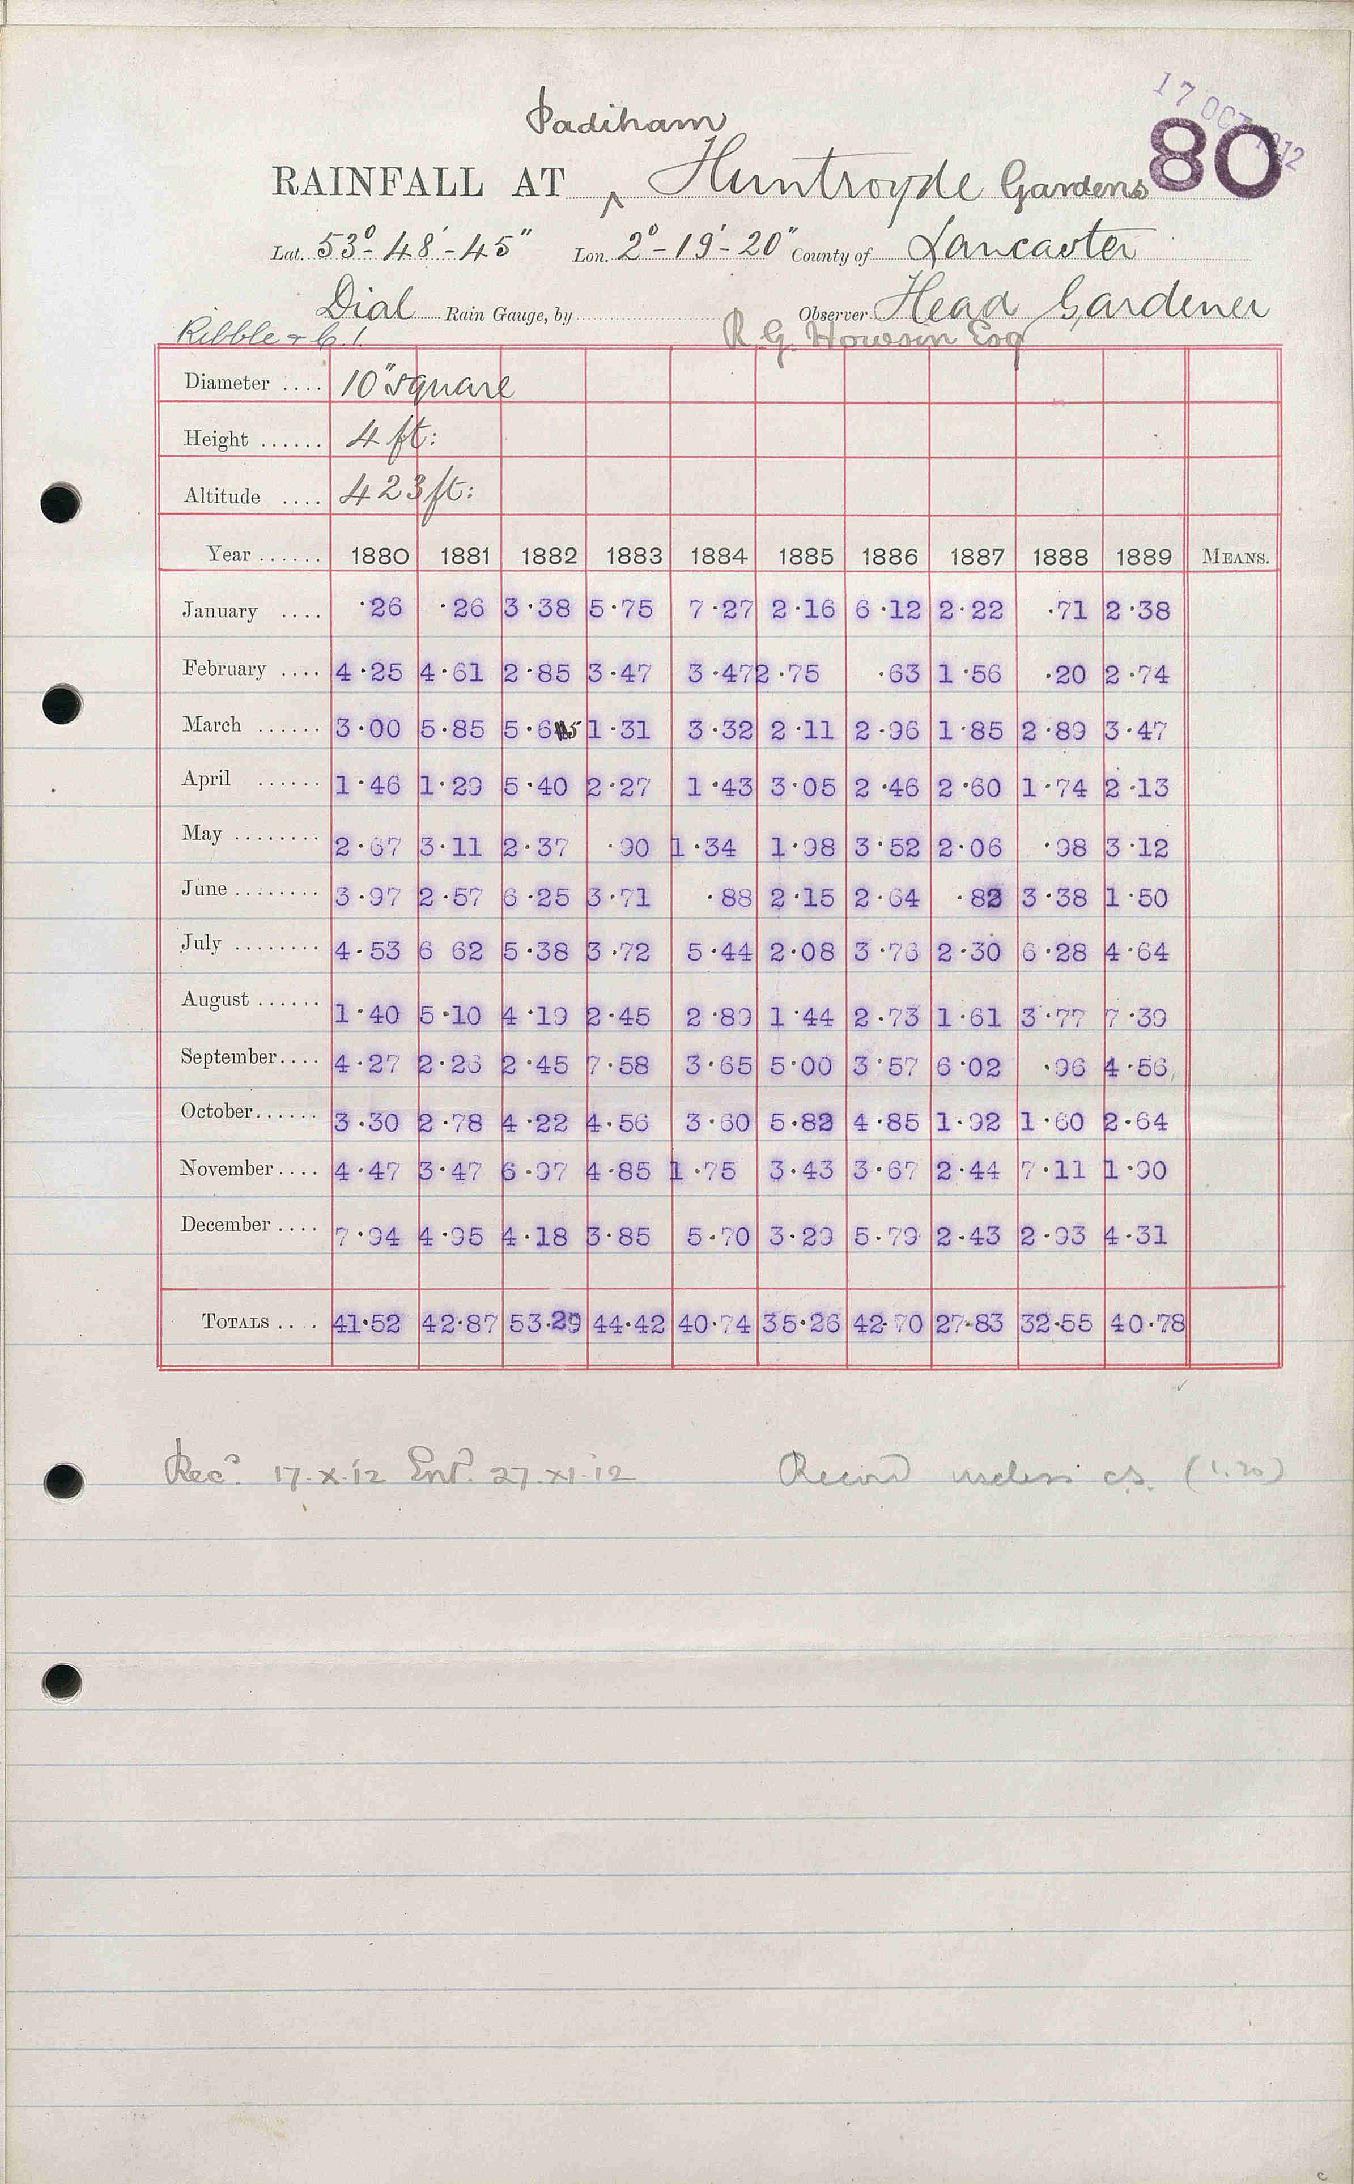 17 OCT 1912
80
Padiham
RAINFALL AT ^ Huntroyde Gardens
Lat. 53°-48'-45" Lon. 2°-19'-20" County of Lancaster
Dial Rain Gauge, by Observer. Head Gardener
Ribble R. G. Howson Esq
Diameter .... 10" square
Height ...... 4 ft:
Altitude .... 423 ft:
Year ...... 1880 1881 1882 1883 1884 1885 1886 1887 1888 1889 MEANS.
January .... ·26 ·26 3·38 5·75 7·27 2·16 6·12 2·22 ·71 2·38
February .... 4·25 4·61 2·85 3·47 3·47 2·75 ·63 1·56 ·20 2·74
March ...... 3·00 5·85 5·65 1·31 3·32 2·11 2·96 1·85 2·89 3·47
April ...... 1·46 1·29 5·40 2·27 1·43 3·05 2·46 2·60 1·74 2·13
May ........ 2·67 3·11 2·37 ·90 1·34 1·98 3·52 2·06 ·98 3·12
June ........ 3·97 2·57 6·25 3·71 ·88 2·15 2·64 ·82 3·38 1·50
July ........ 4·53 6 62 5·38 3·72 5·44 2·08 3·76 2·30 6·28 4·64
August ...... 1·40 5·10 4·19 2·45 2·89 1·44 2·73 1·61 3·77 7·39
September.... 4·27 2·26 2·45 7·58 3·65 5·00 3·57 6·02 ·96 4·56
October...... 3·30 2·78 4·22 4·56 3·60 5·82 4·85 1·92 1·60 2·64
November.... 4·47 3·47 6·97 4·85 1·75 3·43 3·67 2·44 7·11 1·90
December .... 7·94 4·95 4·18 3·85 5·70 3·29 5·79 2·43 2·93 4·31
TOTALS .... 41·52 42·87 53·29 44·42 40·74 35·26 42·70 27·83 32·55 40·78
Recd. 17.X.12 Entd. 27.XI.12 Record useless